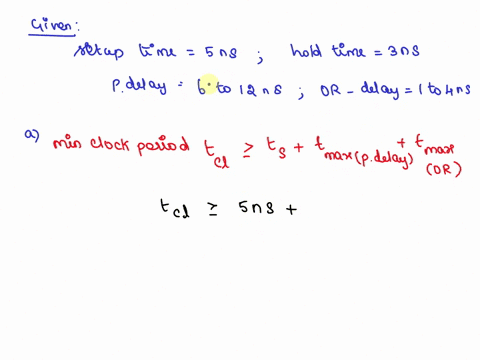 Given:
setup time = 5ns ; hold time = 3ns
P.delay = 6 to 12ns ; OR-delay = 1 to 4ns
a) min clock period t_cl ≥ t_s + t_max(p.delay) + t_max (OR)
t_cl ≥ 5ns +